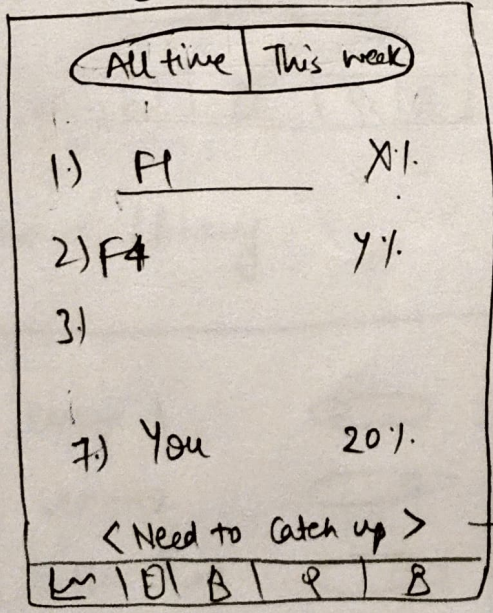 All time | This week
1.) F1 X%
2) F4 Y%
3.)
7.) You 20%.
< Need to Catch up >